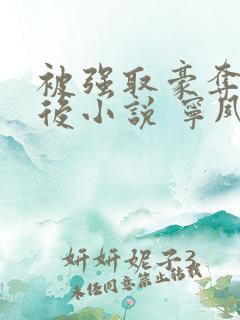 被强取豪夺
後小説 寧风
妍妍妮子3
未经同意禁止转载